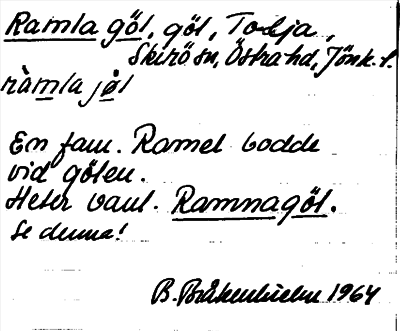 Ramla göl, göl, Tolja,
Skirö sn, Östra hd, Jönk. l.
ràmla jøl
En fam. Ramel bodde
vid gölen.
Heter vanl. Ramnagöl.
Se denna!
B. Bråkenhielm 1964